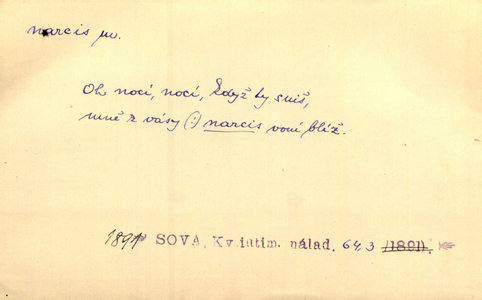 narcis m.
Oh nocí, nocí, když ty sníš,
mně z vásy (:) narcis voní blíž.
1891 SOVA, Kv. intim. nálad, 64,3 (1891).